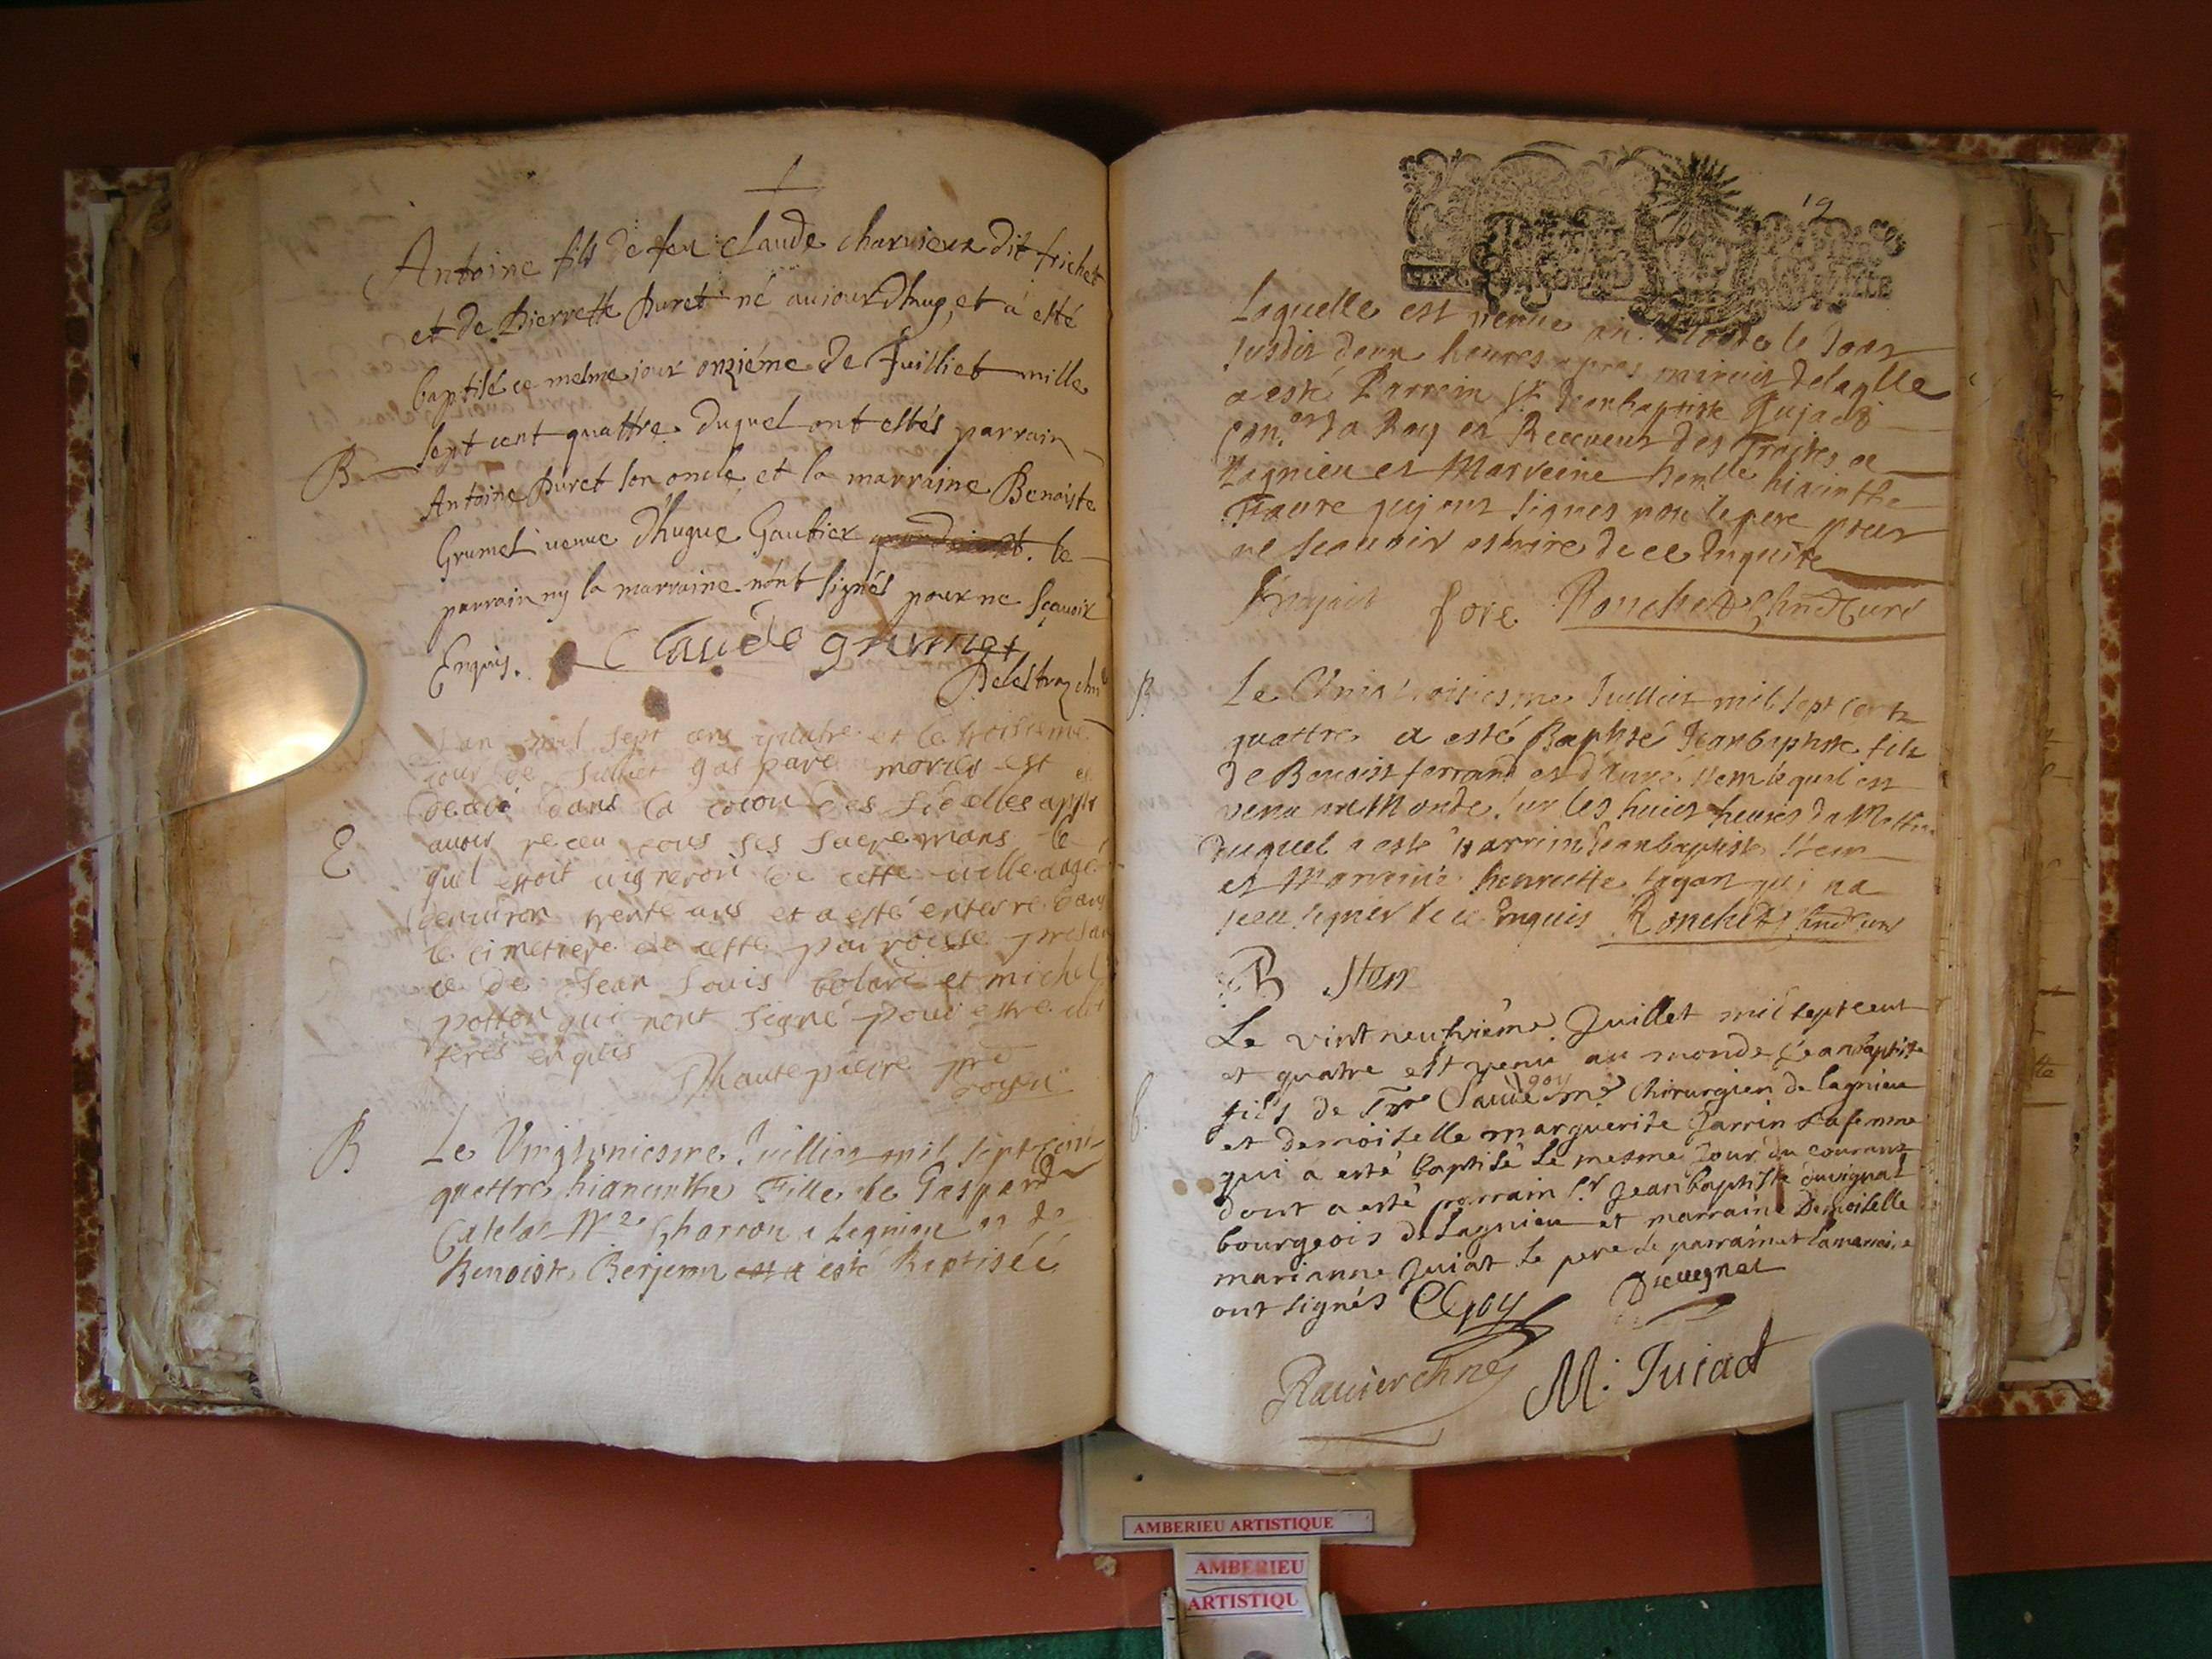 Antoine fils de feu claude charvieux dit frichet
et de pierrette puret né aujourdhuy, et a esté
baptisé ce mesme jour onziéme de Juilliet mille
B sept cent quattre. duquel ont estés parrain
Antoine puret son oncle, et la marraine Benoiste
Grumet veuve d'hugue Gautier le
parrain ny la marraine n'ont signés pour ne sçavoir
Enquis. Claude grumet
Delestraz
L'an mil sept cens quatre et le troisieme
jour de Juliet gaspard est
decedé dans la des fidelles apprs
E avoir receu tous ses sacremans le
quel estoit vigneron de cette ville aagé
denviron trente ans et a esté enterré dans
le cimetiere de cette parroisse presan
ce de Jean Louis bolard et michel
potton qui nont signé pour estre
enquis
Dhautepierre
B Le Juillier mil sept cent
quattre hiancinthe Fille de Gaspard
Charron a Lagnieu et de
Benoiste Berjeron esté Baptisée
19
Laquelle est venue au Monde le Jour
susdit deux heures apres minuit delaqlle
a esté Parrein Sr Jeanbaptiste
Coner du Roy et Receveur des Traites a
Lagnieu et Marreine hiacinthe
Faure qui ont signes non le pere pour
ne sçavoir escrire de ce Enquis
fore Ronchet Curé
B. Le Juilliet mil sept cent
quattre a esté Baptisé Jeanbaptiste fils
de Benoist ferrand et d'Anne Item lequel est
venu au Monde sur les huict heures du Mattin
duquel a esté parrein Jeanbaptiste Item
et Marreine henriette qui na
sceu signer de ce Enquis Ronchet
B Item
Le vint neufvième Juillet mil sept cent
et quatre est venu au monde Jean baptiste
b. fils de goy me Chirurgien de lagnieu
et demoiselle marguerite Jarrin sa femme
qui a esté baptisé le mesme Jour du courant
dont a esté parrain Sr Jean baptiste duvignat
bourgeois de Lagnieu et marraine Demoiselle
marianne Juiat le pere le parrain et la marraine
ont signés Goy
Ravier M. Juiad
AMBERIEU ARTISTIQUE
AMBERIEU
ARTISTIQU